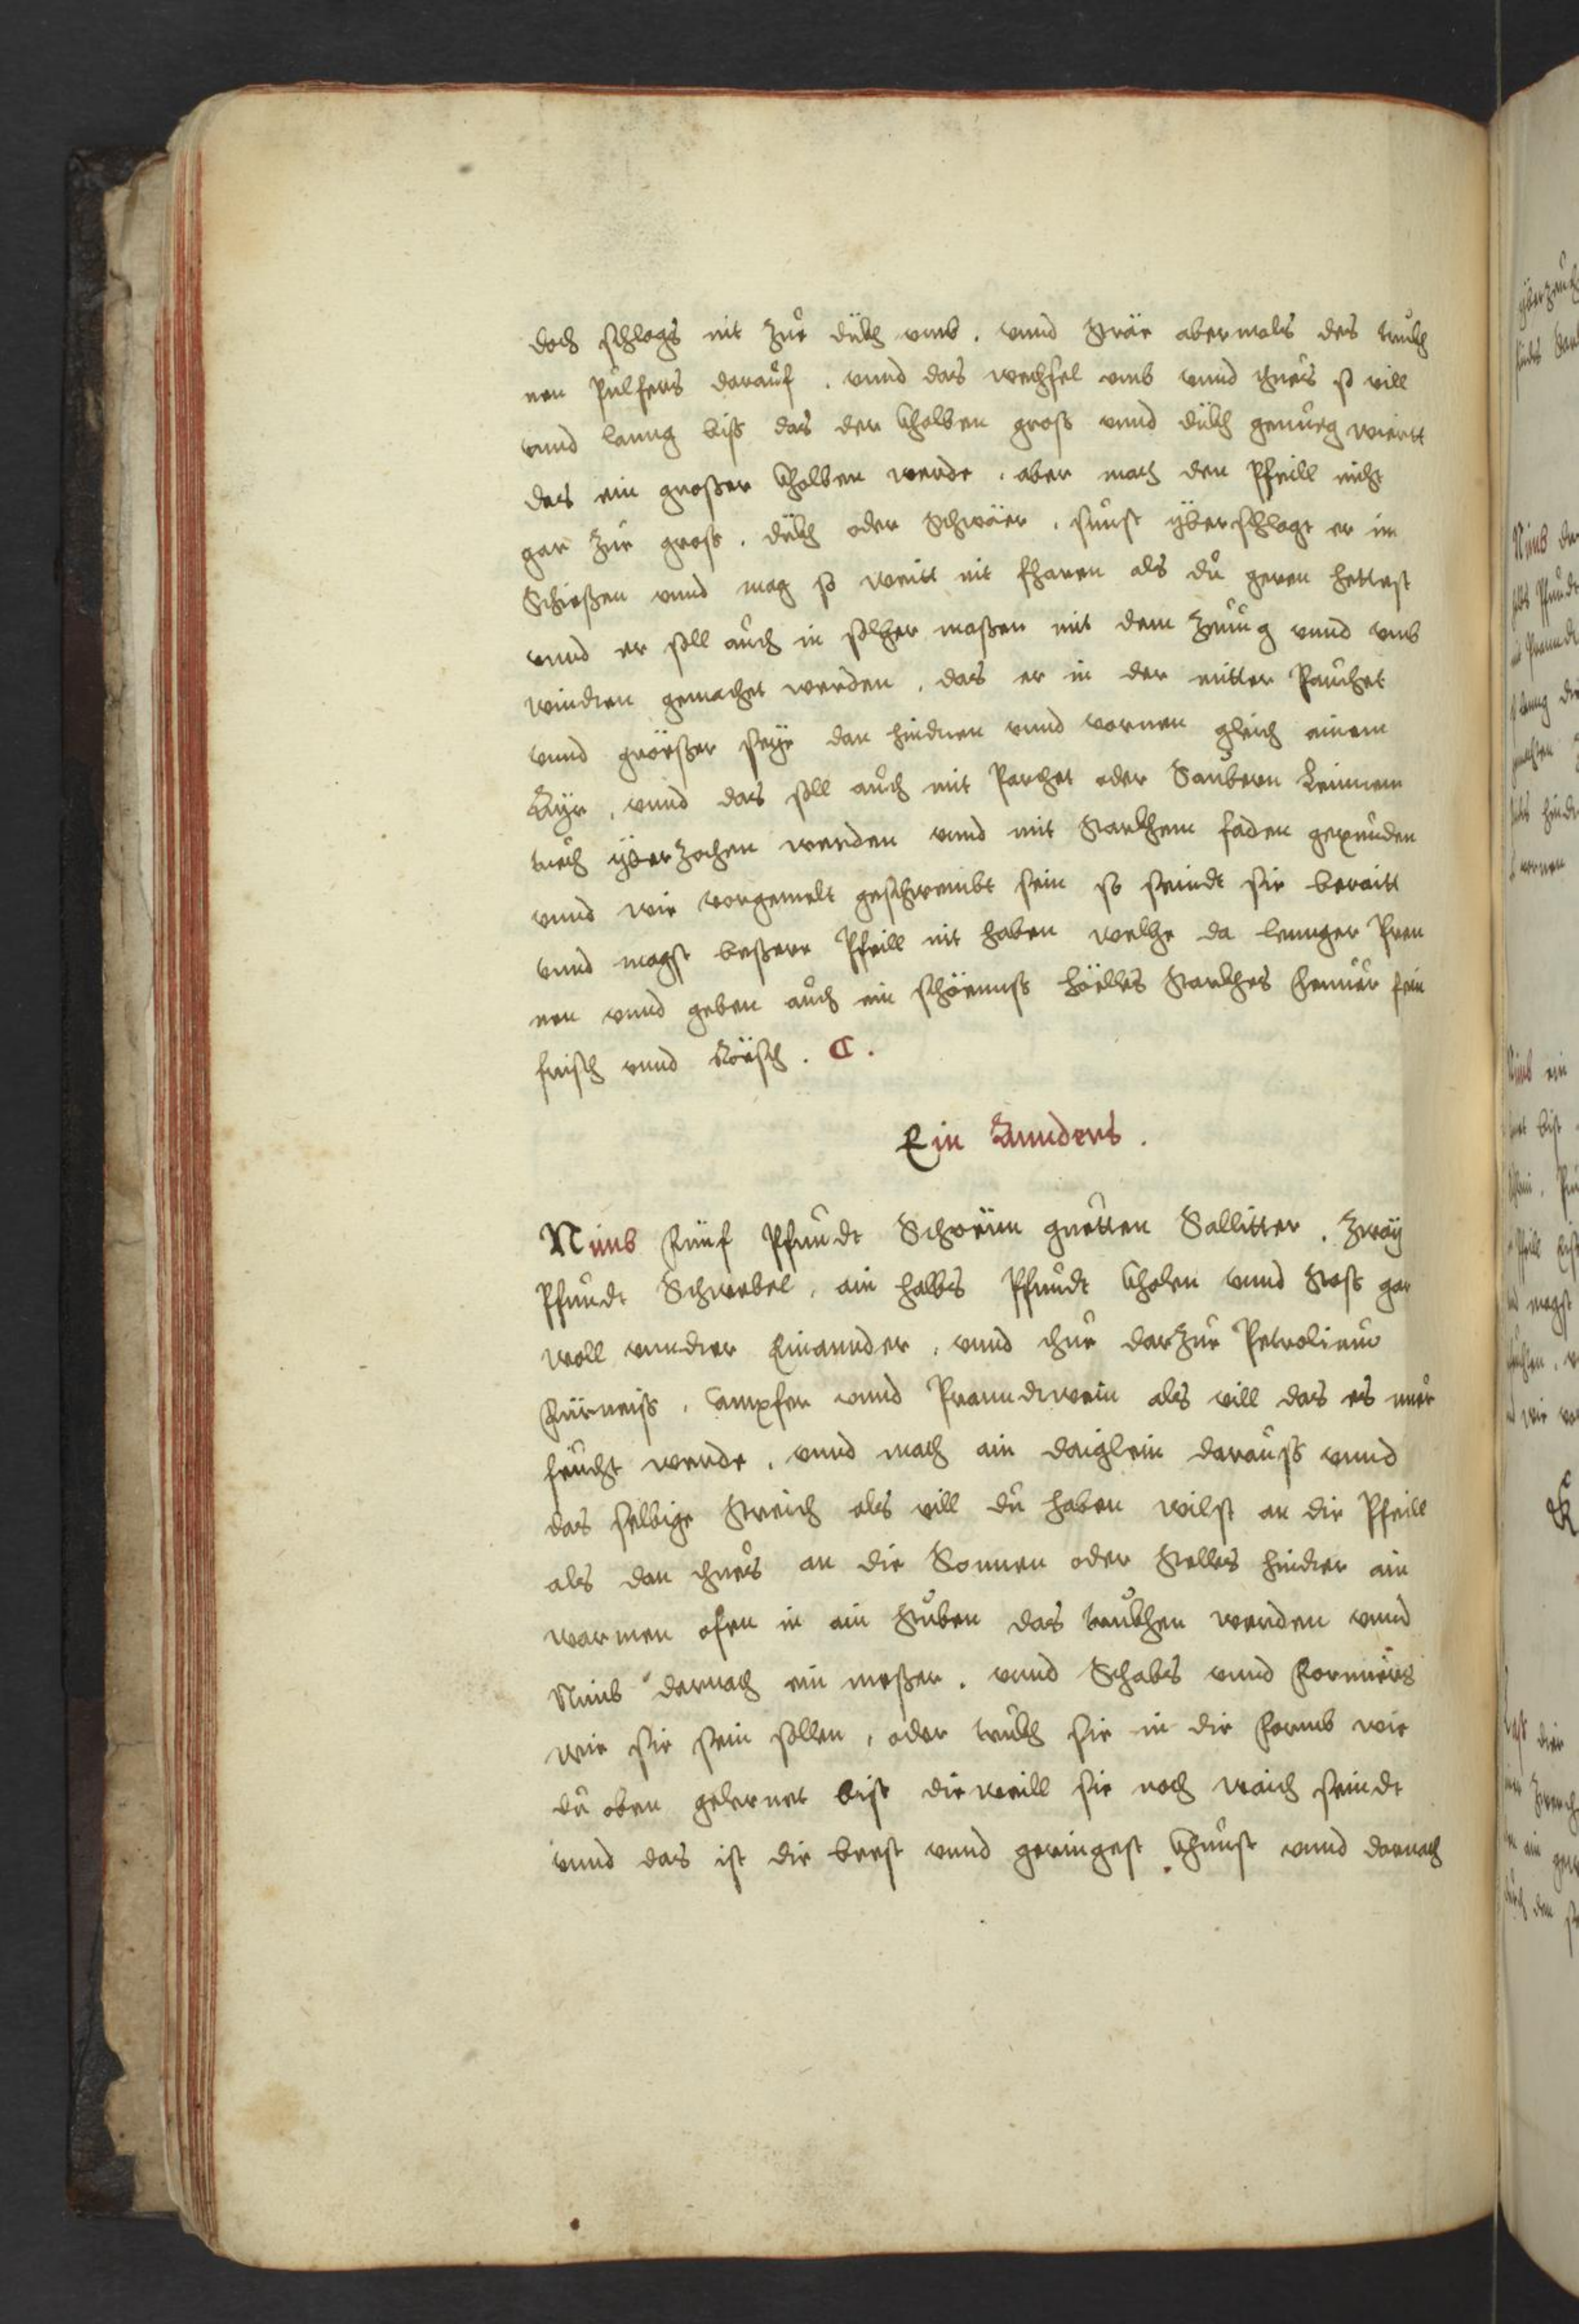 doch schlags nit zue dickh vmb. vnnd Sträe abermals des truckh
nen Pulfers darauf. vnnd das wechsel vmb vnnd thues so vill
vnnd lanng biss das der Kholben gross vnnd dickh genueg wiertt
das ein grosser Kholben werde. aber mach den Pfeill nicht
gar zue gross. dickh oder Schwäer. sunst yberschlagt er im
Schiessen vnnd mag so weitt nit fharen als du geren hettest
vnnd er soll auch in solher massen mit dem Zeuug vnnd vmb
windten gemachet werden. das er in der mitten Pauchet
vnnd grösser seye dan hinden vnnd vornen gleich ainem
Ayr. vnnd das soll auch mit Parchet oder Saubern Leinnem
tuech yberzochen werden vnnd mit Starkhem faden gepunden
vnnd wie vorgemelt geschwembt sein so seindt sie beraitt
vnnd magst bessere Pfeill nit haben welhe da lennger Pren
nen vnnd geben auch ein schöenuss höelles Starkhes Feuuer fein
frisch vnnd Röesch. C.
Ein Annders.
Nimb Fünf Pfundt Schöenn guetten Sallitter. Zway
Pfundt Schwebel, ain halbs Pfundt Kholen vnnd Stoss gar
woll vnndter Einannder, vnnd thue darzue Petrolieum
Fürneiss, Campfer vnnd Pranndtwein als vill das es nuer
feucht werde. vnnd mach ain daiglein darauss vnnd
das selbige Streich als vill du haben wilst an die Pfeill
als dan thues an die Sonnen oder Stelles hindter ain
warmen ofen in ain Stuben das truckhen werden vnnd
Nimb darnach ein messer. vnnd Schabs vnnd Formiers
wie sie sein sollen, oder truckh sie in die Formb wie
du oben gelernet bist dieweill sie noch waich seindt
vnnd das ist die best vnnd geringest Khunst vnnd darnach